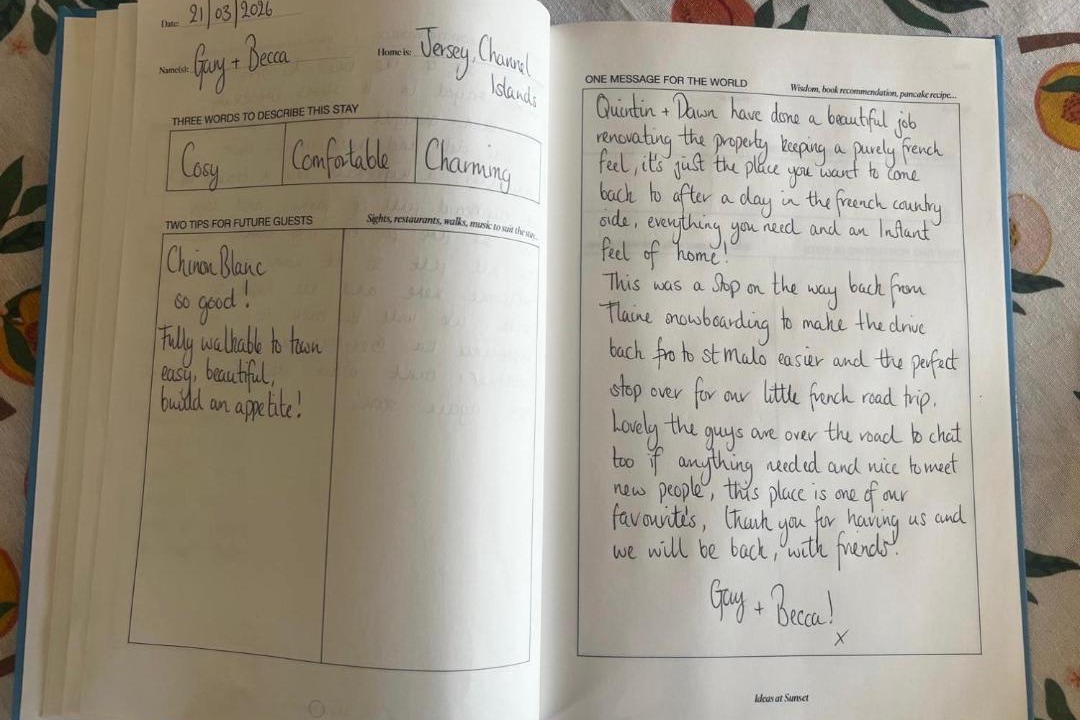 Date: 21/03/2026
Name(s): Gary + Becca
Home is: Jersey, Channel
Islands
THREE WORDS TO DESCRIBE THIS STAY
Cosy
Comfortable
Charming
TWO TIPS FOR FUTURE GUESTS
Sights, restaurants, walks, music to suit the stay...
Chinon Blanc
so good!
Fully walkable to town
easy, beautiful,
build an appetite!
ONE MESSAGE FOR THE WORLD
Wisdom, book recommendation, pancake recipe...
Quintin + Dawn have done a beautiful job
renovating the property keeping a purely french
feel, it's just the place you want to come
back to after a day in the freench country
side, everything you need and an Instant
feel of home!
This was a stop on the way back from
Flaine snowboarding to make the drive
back fro to st Malo easier and the perfect
stop over for our little french road trip.
Lovely the guys are over the road to chat
too if anything needed and nice to meet
new people, this place is one of our
favourite's, thank you for having us and
we will be back, with friends!
Gary + Becca!
x
Ideas at Sunset